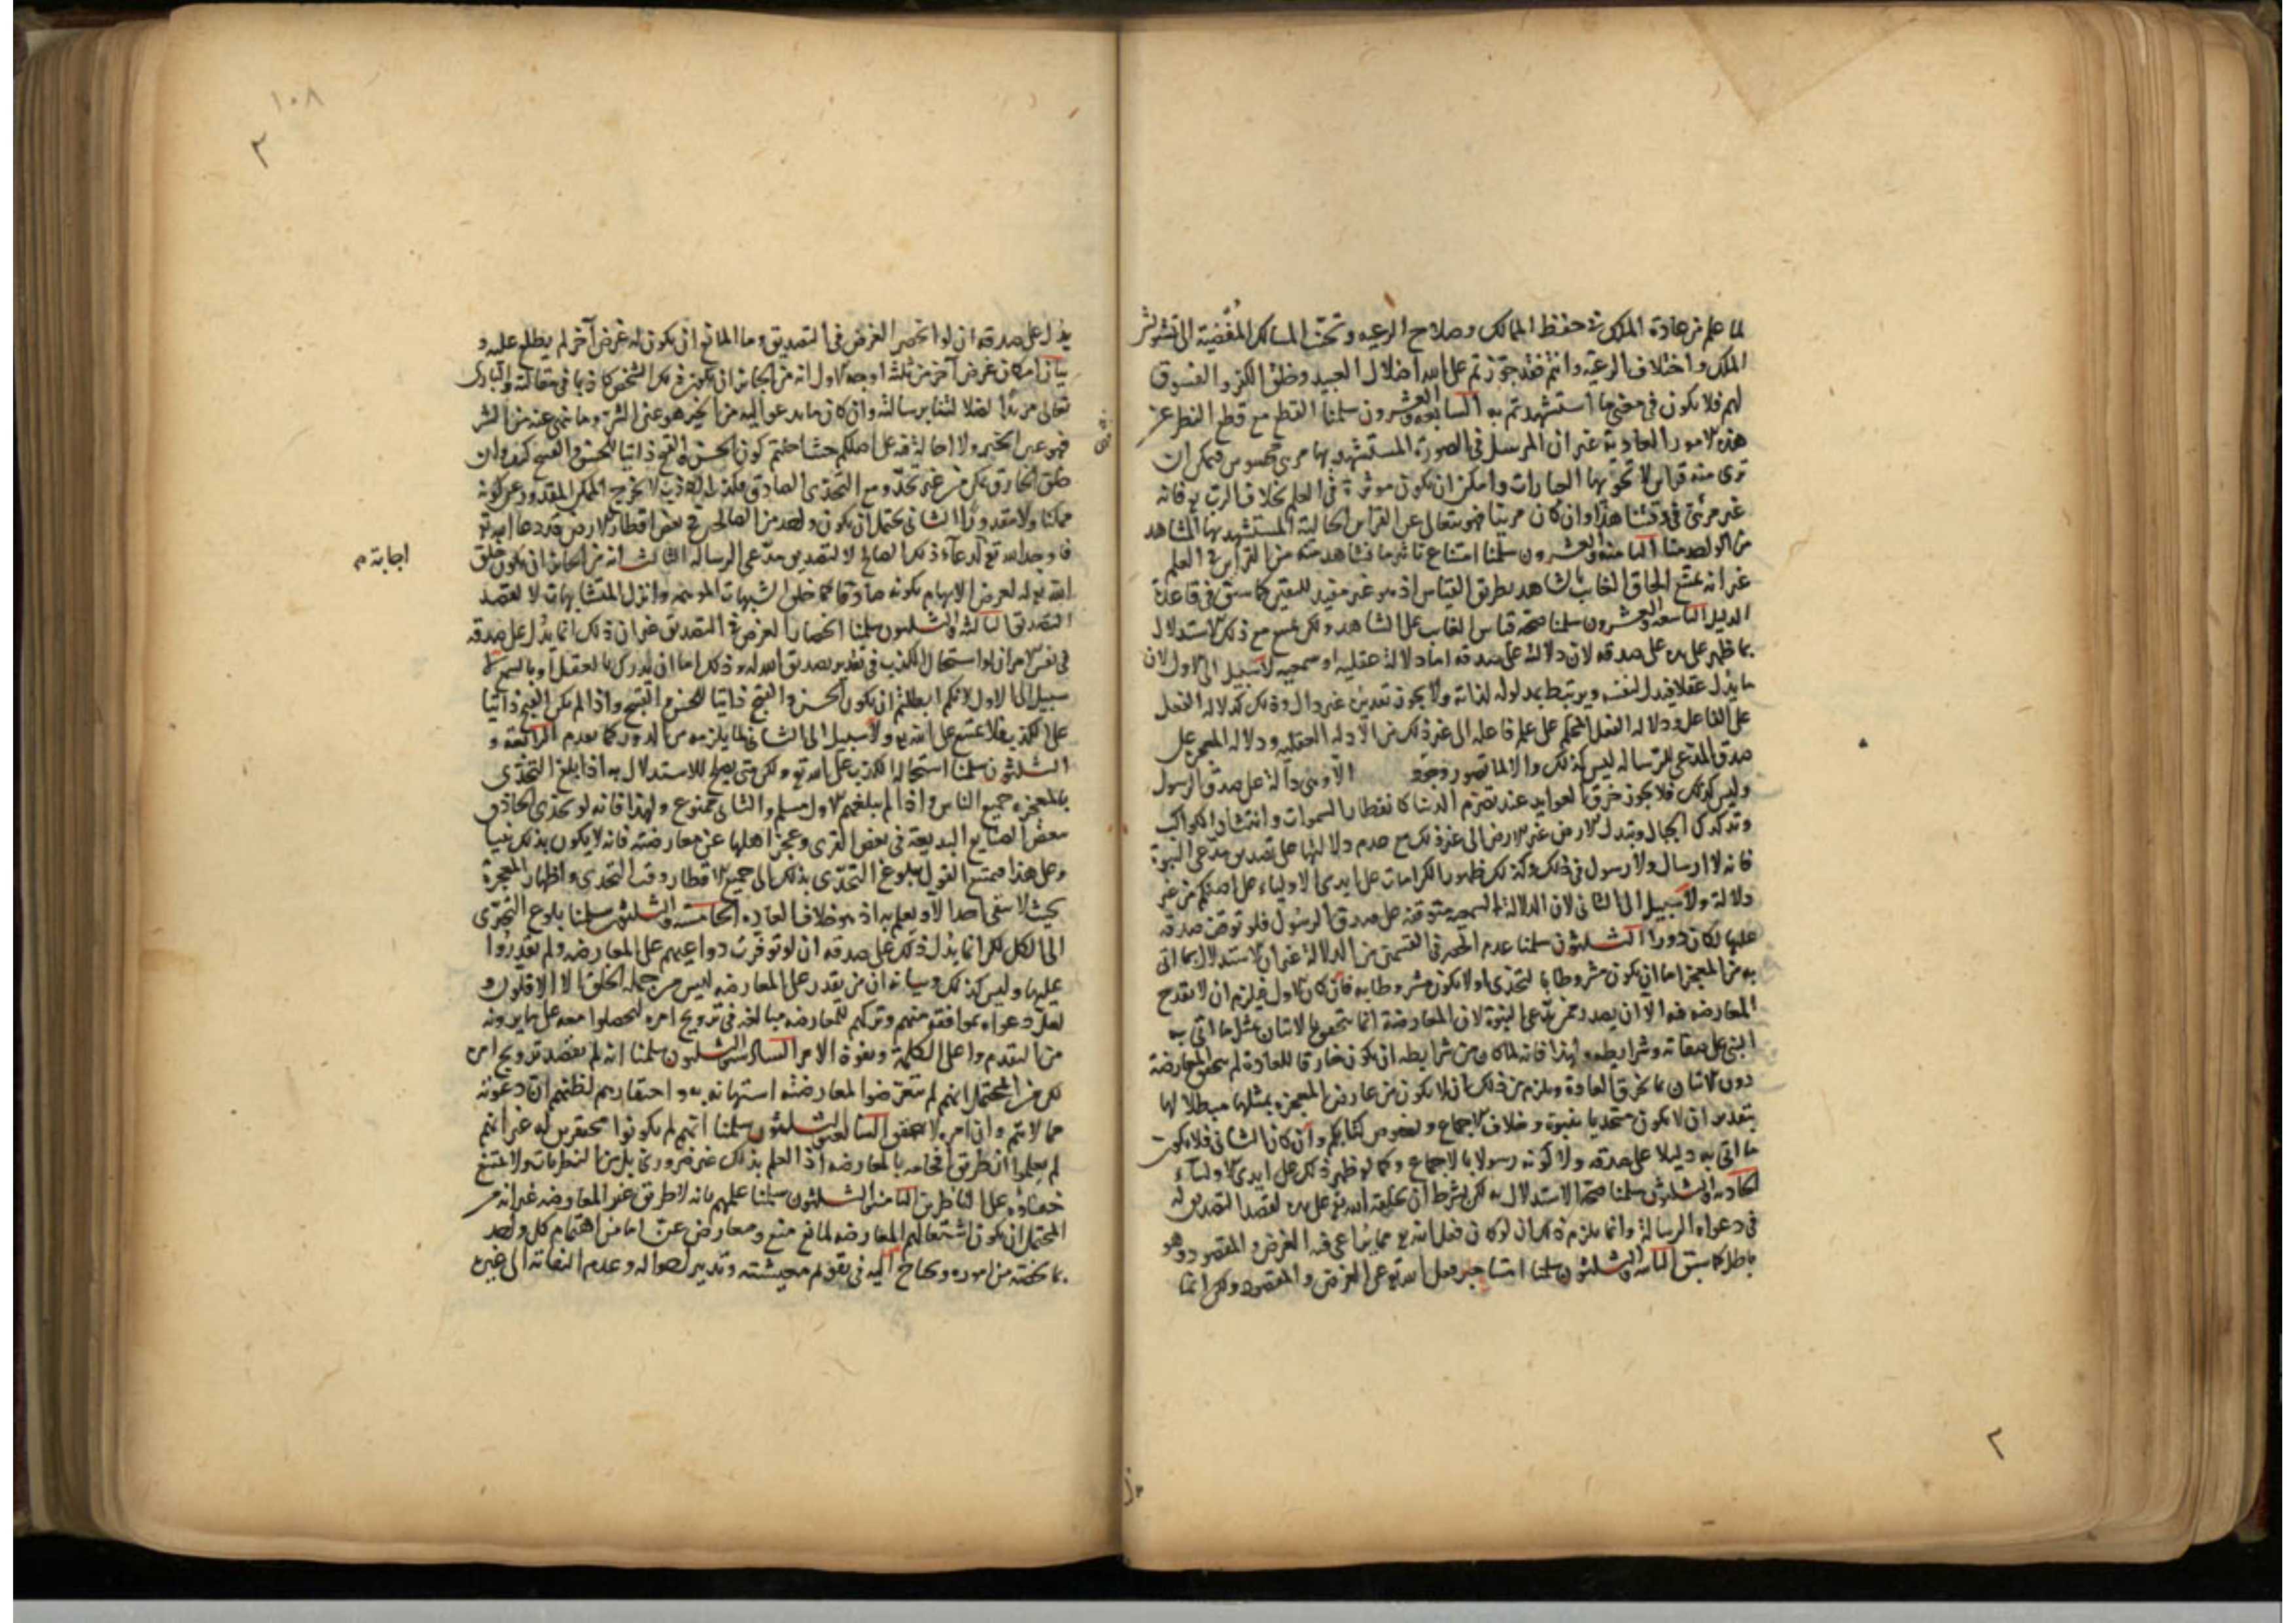 لما علم من عادة الملك فى حفظ الممالك وصلاح الرعيه وتجنب المسالك المفضية الى تشويش
الملك واختلاف الرعية وانتم فقد جوزتم على الله اضلال العبيد وخلق الكفر والفسوق
لهم فلا يكون فى معنى ما استشهدتم به السابعه والعشرون سلمنا القطع مع قطع النظر عن
هذه الامور العادية غير ان المرسل فى الصورة المستشهد بها مرئى محسوس فيمكن ان
ترى منه قراين لا تحويها العبارات وامكن ان يكون موثرة فى العلم بخلاف الرب تع فانه
غير مرئى فى وقتنا هذا وان كان مرئيا فهو يتعالى عن القراين الحالية المستشهد بها المشاهد
من الواحد منا الثامنه والعشرون سلمنا امتناع تاثير ما نشاهد منه من القراين فى العلم
غير انه يمتنع الحاق الغايب بالشاهد بطريق القياس اذ هو غير مفيد لليقين كما سبق فى قاعدة
الدليل التاسعه والعشرون سلمنا صحة قياس الغايب على الشاهد ولكن يمتنع مع ذلك الاستدلال
بما ظهر على يده على صدقه لان دلالته على صدقه اما دلالة عقليه او سمعيه لا سبيل الى الاول لان
ما يدل عقلا فيدل لنفسه ويرتبط بمدلوله لذاته ولا يجوز تقديره غير دال وذلك كدلالة الفعل
على الفاعل ودلاله الفعل المحكم على علم فاعله الى غير ذلك من الادله العقليه ودلاله المعجزه على
صدق المدعى للرساله ليس كذلك والا لما تصور وجود الا وهى دالة على صدق الرسول
وليس كذلك فلا يجوز خرق العوايد عند تصرم الدنيا كانفطار السموات وانتشار الكواكب
وتدكدك الجبال وتبدل الارض غير الارض الى غير ذلك مع عدم دلالتها على تصديق مدعى النبوة
فانه لا ارسال ولا رسول فى ذلك وكذلك ظهور الكرامات على ايدى الاولياء على اصلكم من غير
دلالة ولا سبيل الى الثانى لان الدلالة السمعيه متوقفة على صدق الرسول فلو توقف صدقه
عليها لكان دورا الثلثون سلمنا عدم الحصر فى القسمين من الدلالة غير ان الاستدلال بما اتى
به من المعجز اما ان يكون مشروطا بالتحدى او لا يكون مشروطا به فان كان الاول فيلزم ان لا يقدح
المعارضه فيه الا ان يصدر ممن يدعى النبوة لان المعارضة انما يتحقق بالاتيان بمثل ما اتى به
النبى على صفاته وشرايطه ولهذا فانه لما كان من شرايطه ان يكون خارقا للعادة لم يتحقق المعارضة
دون الاتيان بما يخرق العادة ويلزم من ذلك ان لا يكون من عارض المعجزه بمثلها مبطلا لها
بتقدير ان لا يكون متحديا بنبوة وخلاف الاجماع ونصوص كتابكم وان كان الثانى فلا يكون
ما اتى به دليلا على صدقه ولا كونه رسولا بالاجماع وكما لو ظهر ذلك على ايدى الاولياء
الحاديه والثلثون سلمنا صحة الاستدلال به لكن بشرط ان يخلقه الله تع على يده لقصد التصديق له
فى دعواه الرسالة وانما يلزم ذلك ان لو كان فعل الله تع مما يراعى فيه الغرض والمقصود وهو
باطل كما سبق الثانيه والثلثون سلمنا امتناع خلو فعل الله تع عن الغرض والمقصود ولكن انما
١٠٨
٢
يدل على صدقه ان لو انحصر الغرض فى التصديق وما المانع ان يكون له غرض آخر لم يطلع عليه و
بيان امكان غرض آخر من ثلثة اوجه الاول انه من الجايز ان يكون ذلك الشخص كاذبا فى مقالته والبارى
تعالى مريدا اضلالنا برسالته وان كان ما يدعو اليه من الخير هو عين الشر وما نهى عنه من الشر
فهو عين الخير ولا احالة فيه على اصلكم حيث احلتم كون الحسن والقبح ذاتيا للحسن والقبيح كيف وان
خلق الخارق ممكن من غير تحد ومع التحدى الصادق فكذلك الكاذب لا يخرج الممكن المقدور عن كونه
ممكنا ولا مقدورا الثانى يحتمل ان يكون واحد من الصالحين فى بعض اقطار الارض قد دعا الله تع
فاوجد الله تع لدعاء ذلك الصالح لا لتصديق مدعى الرساله الثالث انه من الجايز ان يكون خلق
اجابة
الله تع له لغرض الابهام بكونه صادقا كما خلق الشبهات الموهمه وانزل المتشابهات لا لقصد
التصديق الثالثه والثلثون سلمنا انحصار الغرض فى التصديق غير ان ذلك انما يدل على صدقه
فى نفس الامر ان لو استحال الكذب فى تقدير تصديق الله له وذلك اما ان يدرك بالعقل او بالسمع لا
سبيل الى الاول لانكم ابطلتم ان يكون الحسن والقبح ذاتيا للحسن والقبيح واذا لم يكن القبح ذاتيا
على الكذب فلا يمتنع على الله تع ولا سبيل الى الثانى لما يلزمه من الدور كما تقدم الرابعه و
الثلثون سلمنا استحاله الكذب على الله تع ولكن متى يصلح للاستدلال به اذا بلغ التحدى
بالمعجزه جميع الناس او اذا لم يبلغهم الاول مسلم والثانى ممنوع ولهذا فانه لو تحدى الحاذق
ببعض الصنايع البديعة فى بعض القرى وعجز اهلها عن معارضته فانه لا يكون بذلك نبيا
وعلى هذا فيمتنع القول ببلوغ التحدى بذلك الى جميع الاقطار وقت التحدى واظهار المعجزة
بحيث لا يبقى احد الا ويعلم به اذ هو خلاف العاده الخامسه والثلثون سلمنا بلوغ التحدى
الى الكل لكن انما يدل ذلك على صدقه ان لو توفرت دواعيهم على المعارضه ولم يقدروا
عليها وليس كذلك وبيانه ان من يقدر على المعارضه ليس من جملة الخلق الا الاقلون و
لعل دعواه بموافقة منهم وتركهم للمعارضه مبالغه فى ترويج امره ليحصلوا معه على ما يرونه
من التقدم واعلى الكلمة ونفوذ الامر السادسه والثلثون سلمنا انه لم يقصد ترويج امره
لكن من المحتمل انهم لم يتعرضوا لمعارضته استهانه به واحتقارهم لظنهم ان دعوته
مما لا يتم وان امره لا يتحقق السابعه والثلثون سلمنا انهم لم يكونوا محتقرين له غير انهم
لم يعلموا ان طريق افحامه بالمعارضه اذ العلم بذلك غير ضرورى بل من النظريات ولا يمتنع
خفاؤه على الناظرين الثامنه والثلثون سلمنا علمهم بانه لا طريق غير المعارضه غير انه من
المحتمل ان يكون اشتغالهم المعارضه لمانع منع ومعارض عن اما من اهتمام كل واحد
بما يخصه من اموره ويحتاج اليه فى تقويم معيشته وتدبير احواله وعدم التفاته الى غيره
٢